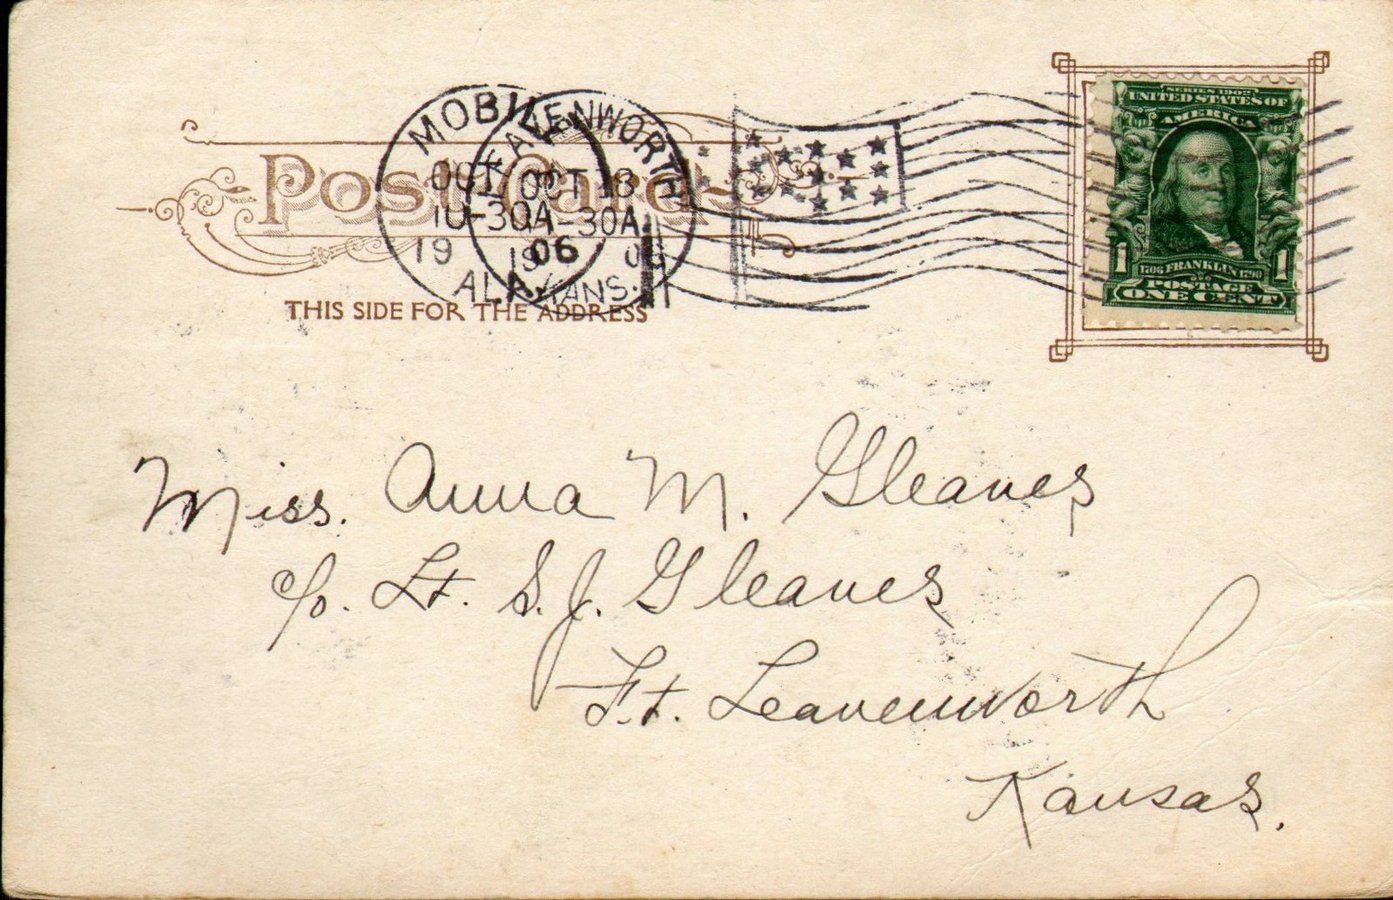 Post Card
THIS SIDE FOR THE ADDRESS
MOBILE
OCT
10-30A
1906
ALA.
LEAVENWORTH
OCT 13
1-30A
1906
KANS.
SERIES 1902
UNITED STATES OF
AMERICA
1 1706 FRANKLIN 1790 1
POSTAGE
ONE CENT
Miss. Anna M. Gleaves
c/o. Lt. S. J. Gleaves
Ft. Leavenworth
Kansas.